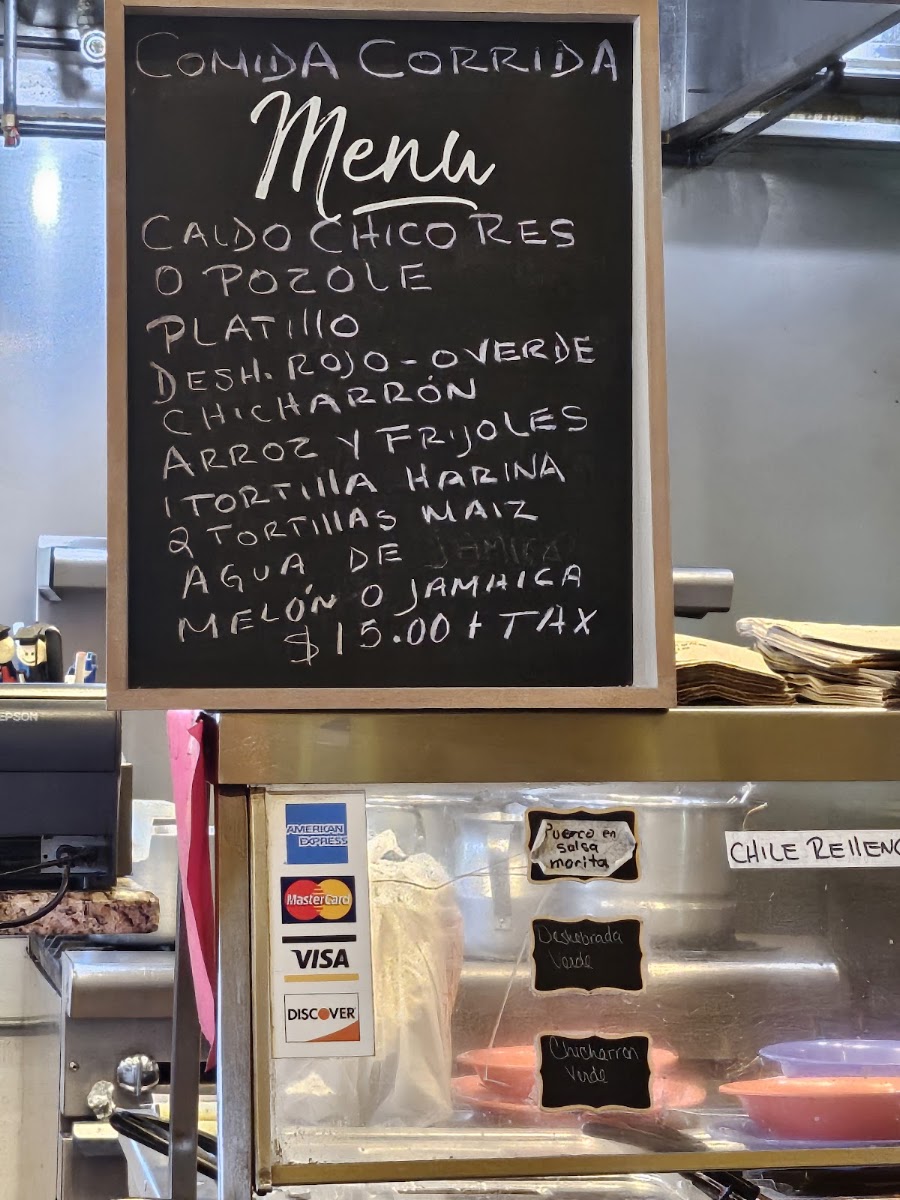 COMIDA CORRIDA
Menu
CALDO CHICO RES
O POZOLE
PLATILLO
DESH. ROJO - O VERDE
CHICHARRÓN
ARROZ Y FRIJOLES
1 TORTILLA HARINA
2 TORTILLAS MAIZ
AGUA DE
MELÓN O JAMAICA
$15.00 + TAX
EPSON
AMERICAN
EXPRESS
MasterCard
VISA
DISCOVER
Puerco en
salsa
morita
CHILE RELLENO
Deshebrada
Verde
Chicharron
Verde